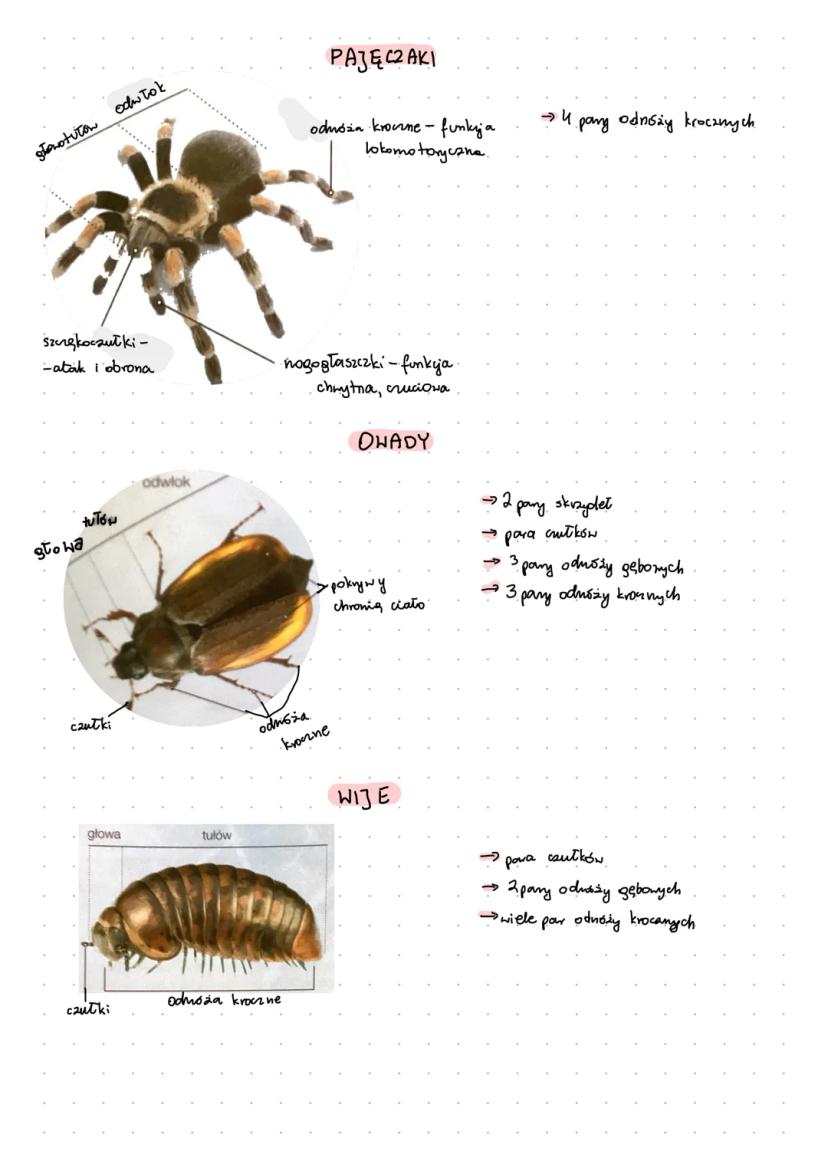 PAJĘCZAKI
głowotułów odwłok
odnóża kroczne – funkcja
lokomotoryczna
→ 4 pary odnóży krocznych
szczękoczułki –
– atak i obrona
nogogłaszczki – funkcja
chwytna, czuciowa
OWADY
odwłok
tułów
głowa
→ 2 pary skrzydeł
→ para czułków
→ 3 pary odnóży gębowych
→ 3 pary odnóży krocznych
pokrywy
chronią ciało
czułki
odnóża
kroczne
WIJE
głowa tułów
→ para czułków
→ 2 pary odnóży gębowych
→ wiele par odnóży krocznych
odnóża kroczne
czułki